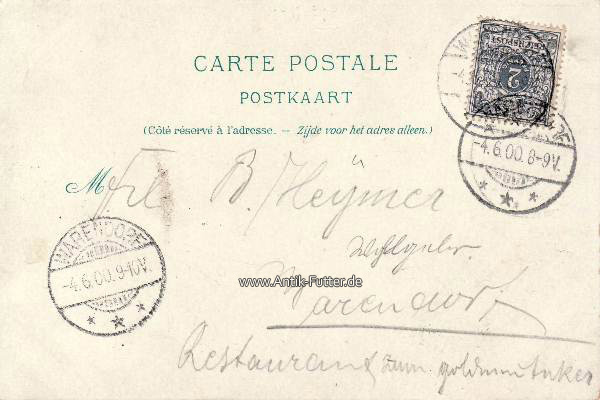 CARTE POSTALE
POSTKAART
(Côté réservé à l'adresse. — Zijde voor het adres alleen.)
M
Frl. B. Heymer
Wohlgeb.
Warendorf
Restaurant zum goldnen Anker
WARENDORF
-4.6.00.9-10V.
-4.6.00.8-9V.
REICHSPOST
2
www.Antik-Futter.de